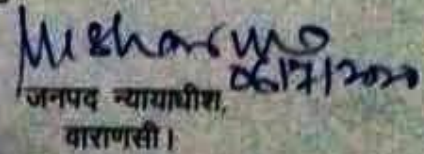 06/7/2020
जनपद न्यायाधीश,
वाराणसी।